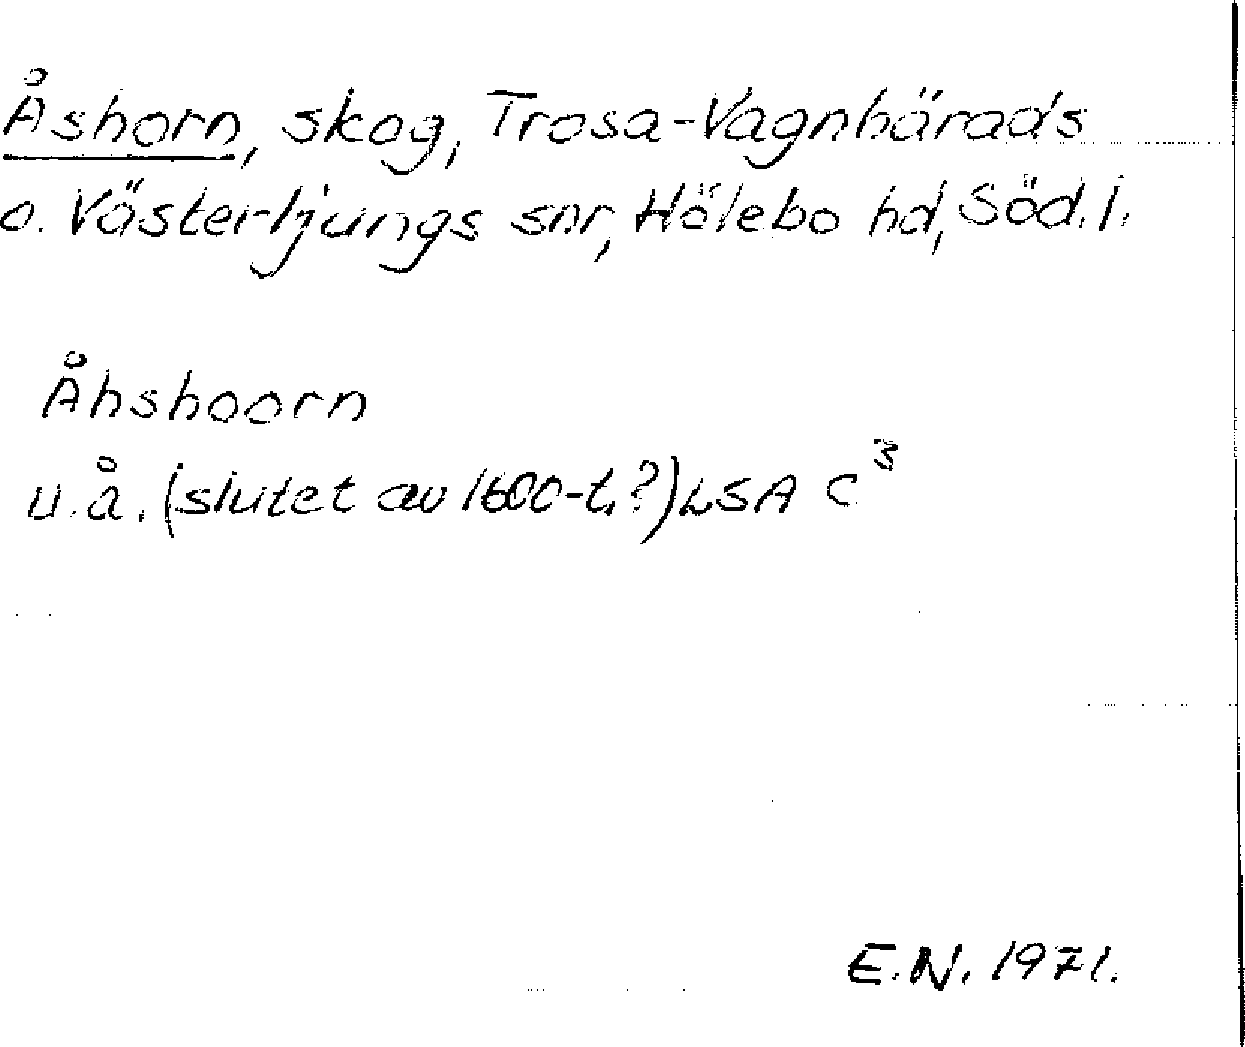 Åshorn, skog, Trosa-Vagnhärads
o. Västerljungs snr, Hölebo hd, Söd.l.
Åhshoorn
u.å. (slutet av 1600-t.?) LSA C³
E.N. 1971.